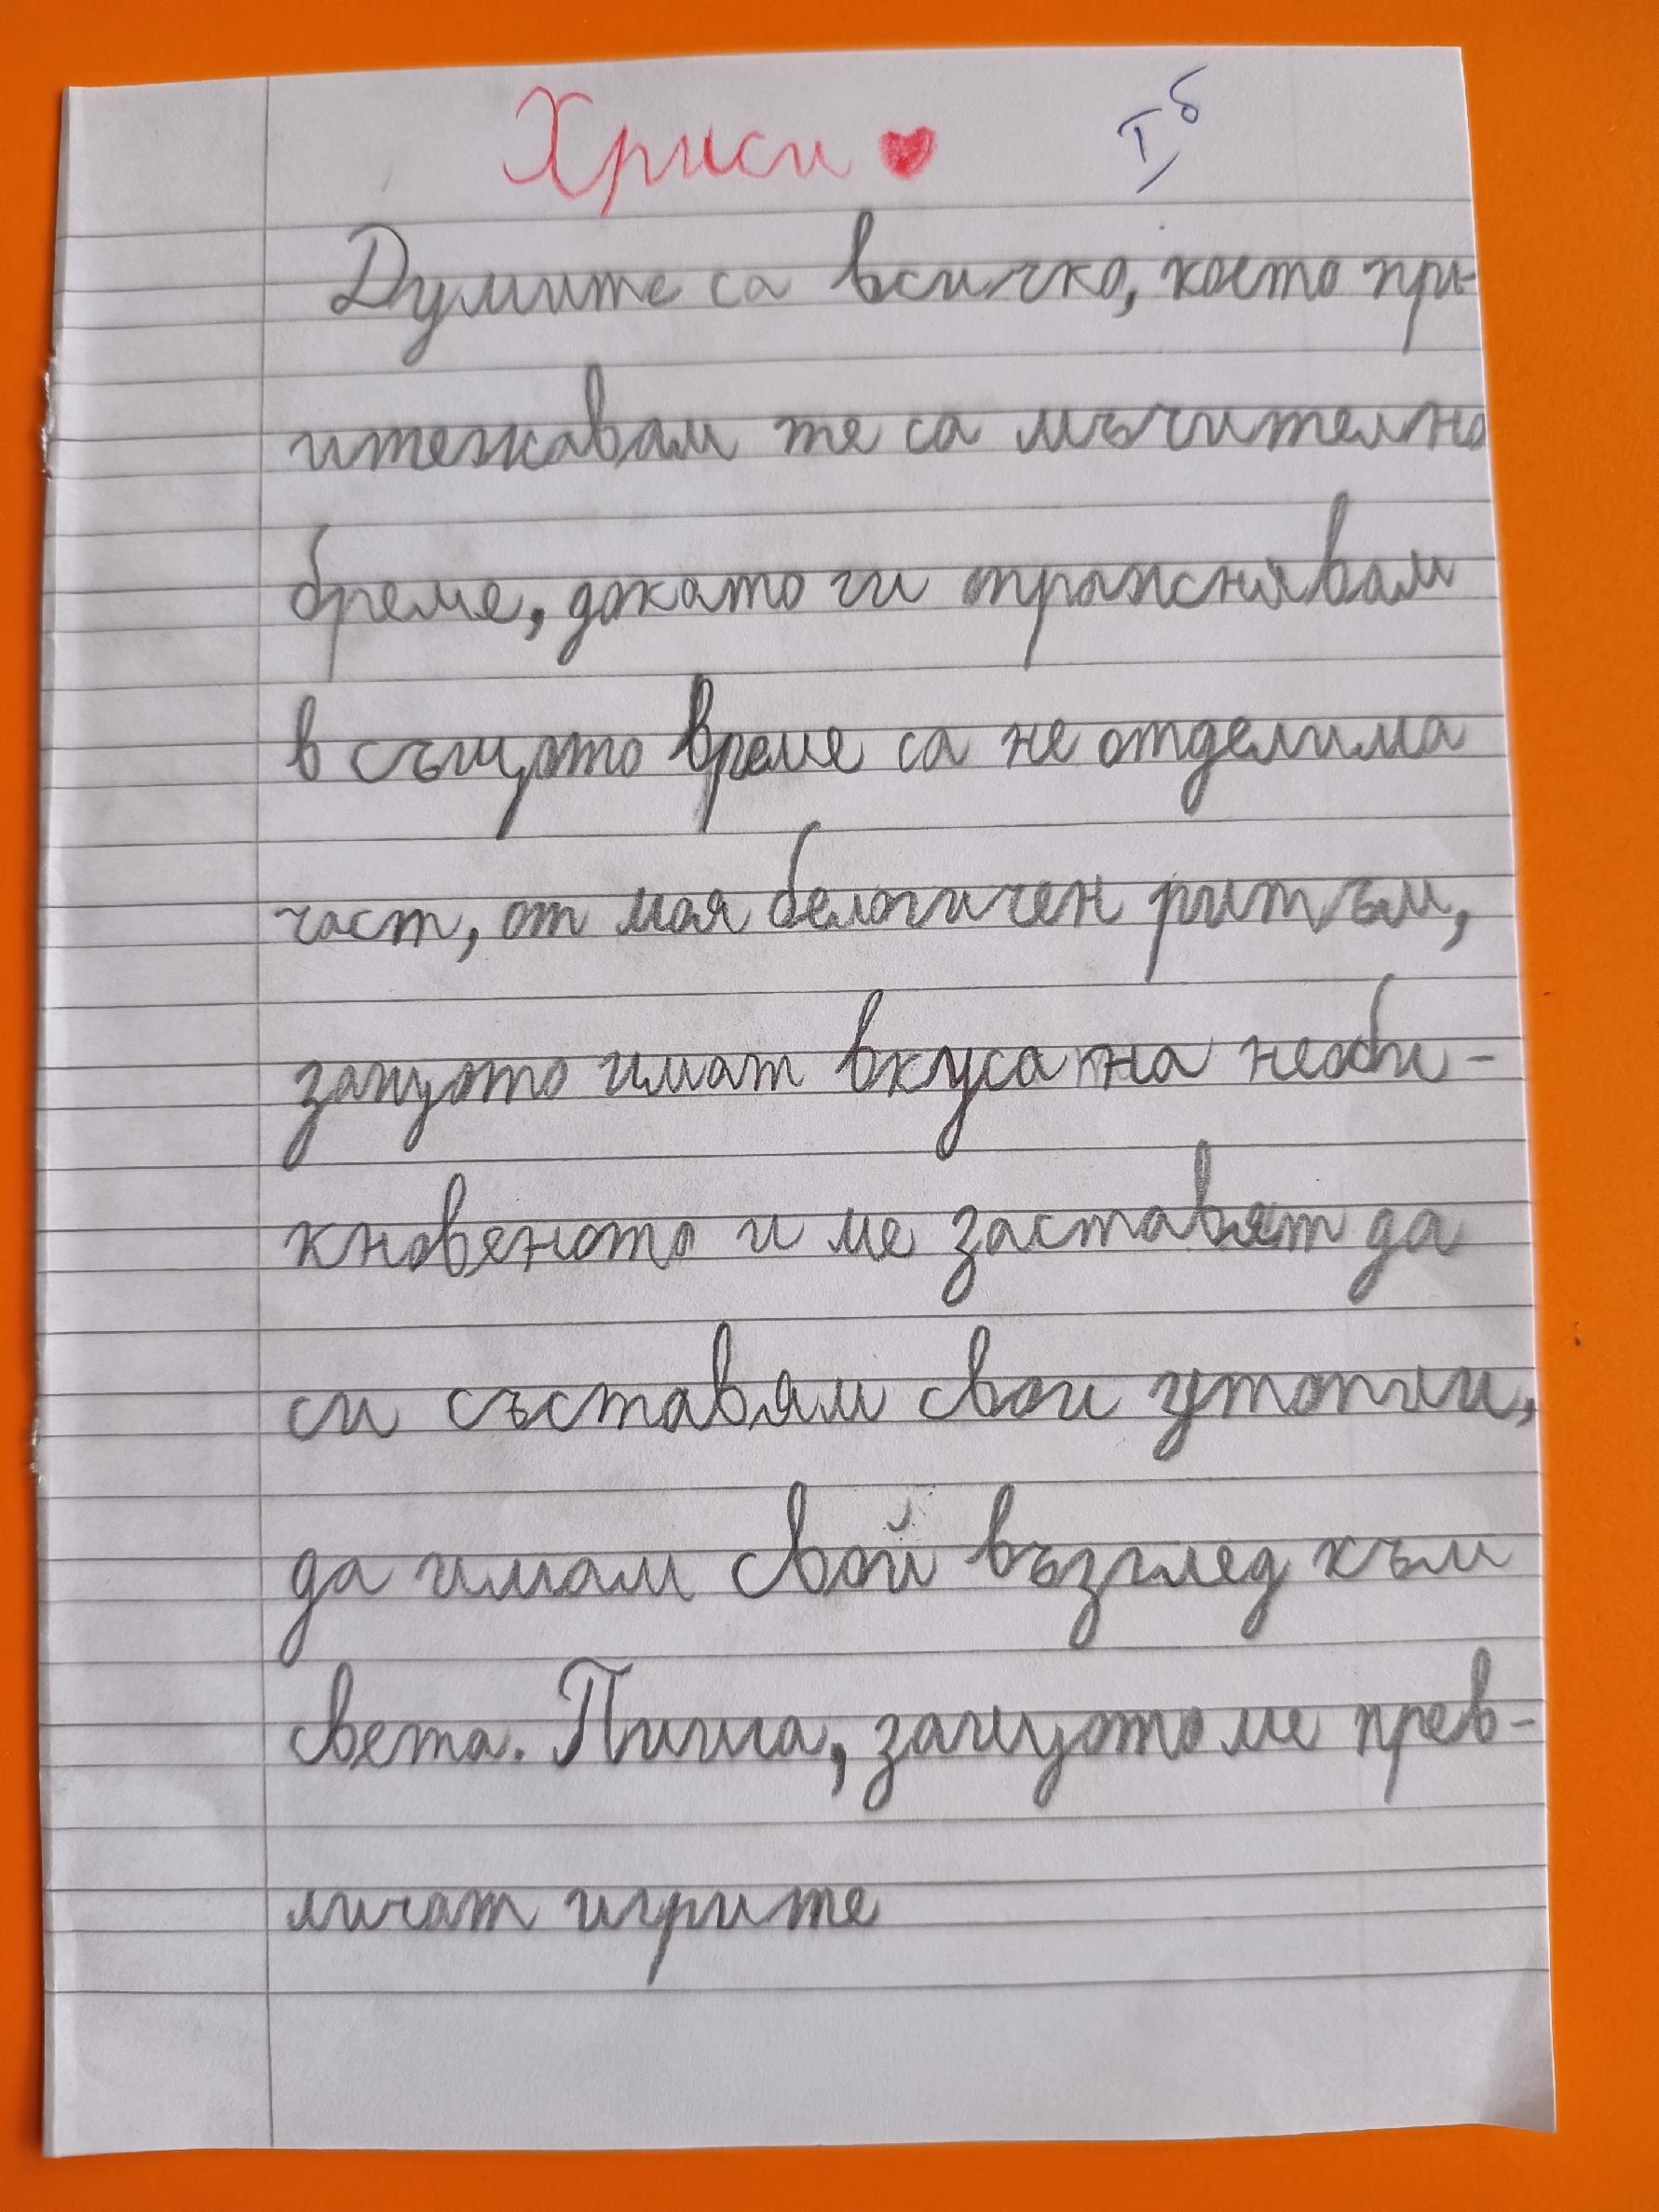 Хриси ♥ Iб
Думите са всичко, което при-
итежавам те са мъчително
бреме, докато ги опражснявам
в същото време са не отделима
част, от моя белогичен ритъм,
защото имат вкуса на необи-
кновеното и ме заставят да
си съставям свои утопии,
да имам свой възглед към
света. Пиша, защото ме прев-
личат игрите